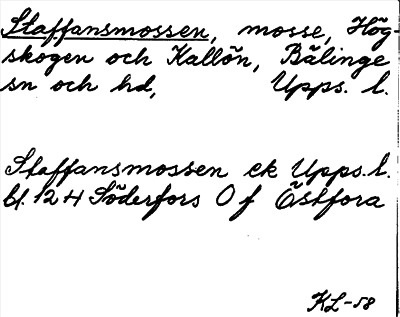 Staffansmossen, mosse, Hög-
skogen och Kallön, Bälinge
sn och hd, Upps. l.
Staffansmossen ek Upps. l.
bl. 12 H Söderfors O f Östfora
KL-58